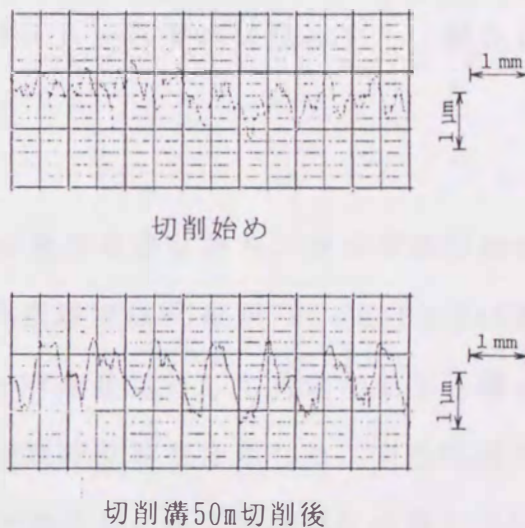 1 mm
1 μm
切削始め
1 mm
1 μm
切削溝50m切削後